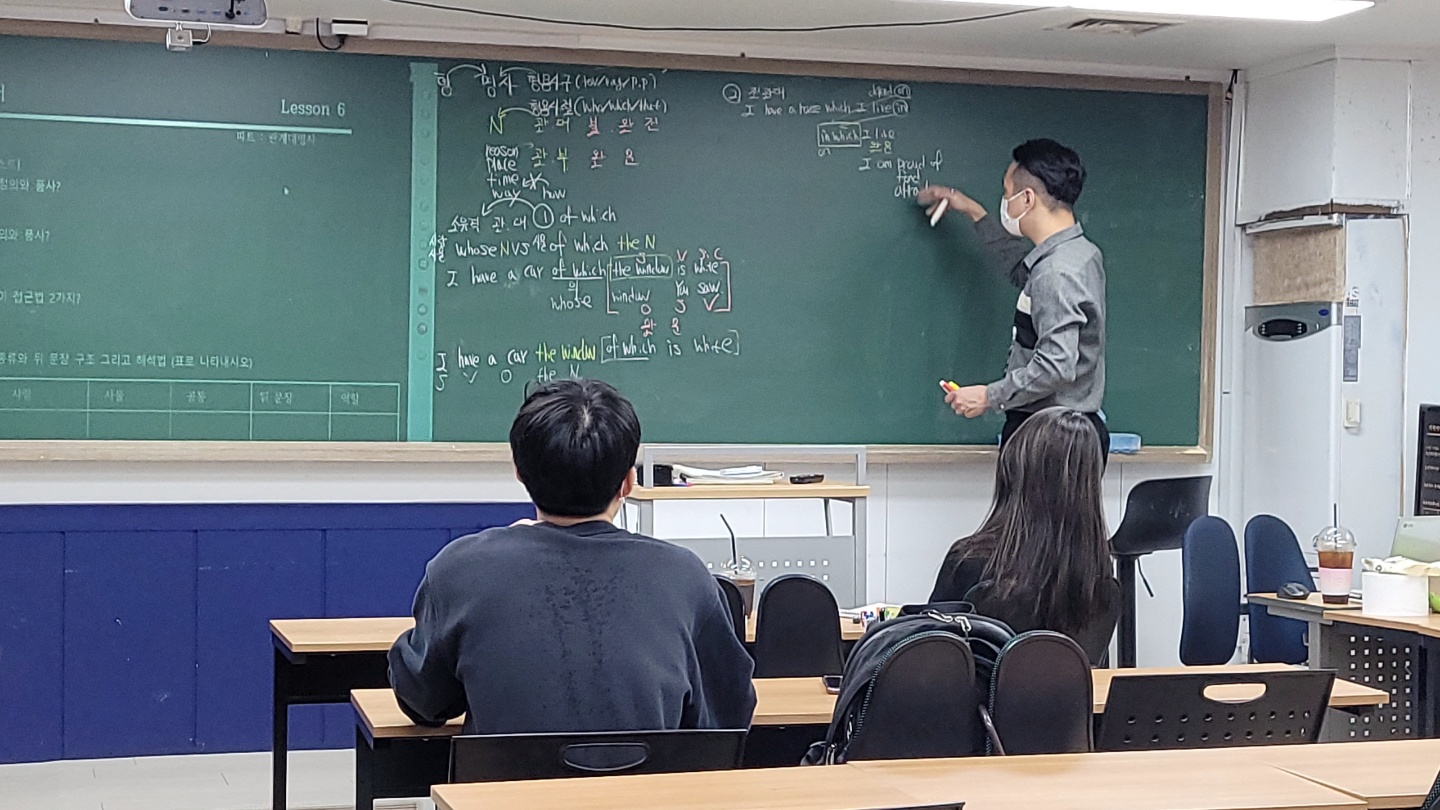 Lesson 6
파트 : 관계대명사
정의와 품사?
의와 품사?
접근법 2가지?
종류와 뒤 문장 구조 그리고 해석법 (표로 나타내시오)
사람 사물 공통 뒤 문장 역할
형 명사 형용사구 (to v/ving/p.p)
형용사절 (who/which/that)
N 관 대 불 완 전
reason
place 관 부 완 전
time
way how
소유격 관 대 ① of which
whose N vs of which the N
I have a car of which the window is white
의 window You saw
whose O S V
I have a car the window of which is white
S V O the N
② 전 관대
I have a house which I live in
in which I live
I am proud of